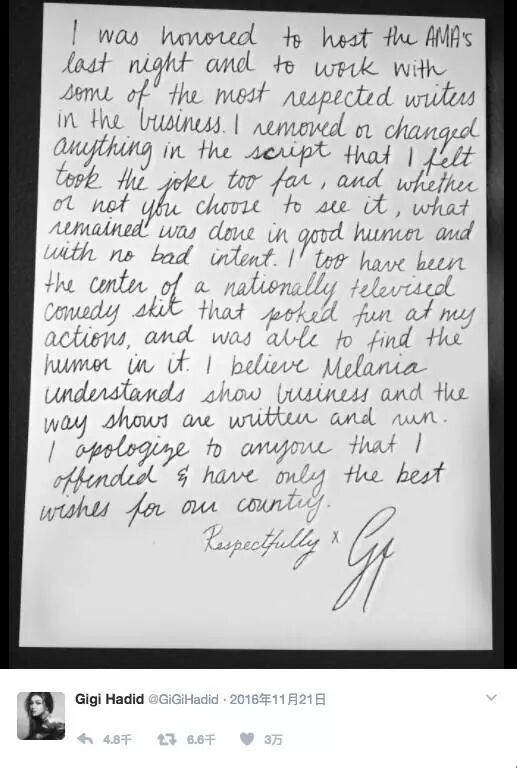 I was honored to host the AMA's
last night and to work with
some of the most respected writers
in the business. I removed or changed
anything in the script that I felt
took the joke too far, and whether
or not you choose to see it, what
remained was done in good humor and
with no bad intent. I too have been
the center of a nationally televised
comedy skit that poked fun at my
actions, and was able to find the
humor in it. I believe Melania
understands show business and the
way shows are written and run.
I apologize to anyone that I
offended & have only the best
wishes for our country.
Respectfully x Gi
Gigi Hadid @GiGiHadid · 2016年11月21日
4.8千 6.6千 3万